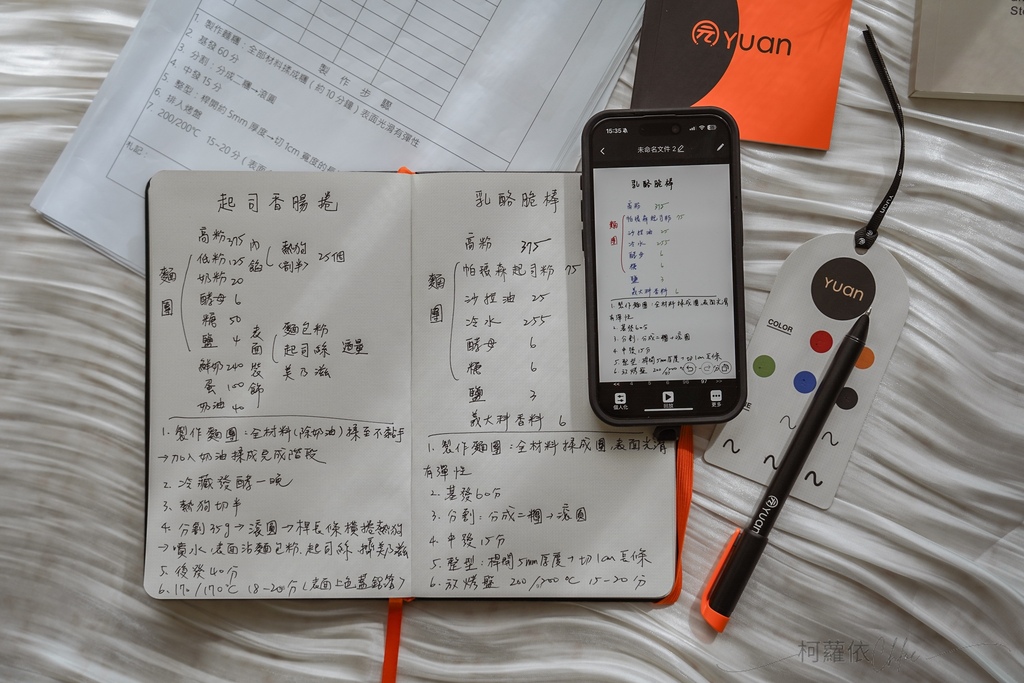 製作步驟
1. 製作麵糰：全部材料揉成糰（約10分鐘）表面光滑有彈性
2. 基發60分
3. 分割：分成二糰→滾圓
4. 中發15分
5. 整型：桿開約5mm厚度→切1cm寬度的長
6. 排入烤盤
7. 200/200℃ 15-20分（表面
札記：
元 YUan
起司香腸捲
麵團
高粉375
低粉125
奶粉20
酵母6
糖 50
鹽 4
鮮奶240
蛋 100
奶油40
內餡
熱狗(剖半) 25個
表面裝飾
麵包粉
起司絲 適量
美乃滋
1. 製作麵團：全材料(除奶油)揉至不黏手
→加入奶油揉成完成階段
2. 冷藏發酵一晚
3. 熱狗切半
4. 分割35g→滾圓→桿長條橫捲熱狗
→噴水.表面沾麵包粉.起司絲.擠美乃滋
5. 後發40分
6. 170/170℃ 18-20分(表面上色蓋鋁箔)
乳酪脆棒
麵團
高粉 375
帕瑪森起司粉 75
沙拉油 25
冷水 255
酵母 6
糖 6
鹽 3
義大利香料 6
1. 製作麵團：全材料揉成團,表面光滑
有彈性
2. 基發60分
3. 分割：分成二糰→滾圓
4. 中發15分
5. 整型：桿開5mm厚度→切1cm長條
6. 放烤盤 200/200℃ 15-20分
15:35
未命名文件 2
乳酪脆棒
麵團
高粉 375
帕瑪森起司粉 75
沙拉油 25
冷水 255
酵母 6
糖 6
鹽 3
義大利香料 6
1. 製作麵團：全材料揉成團,表面光滑
有彈性
2. 基發60分
3. 分割：分成二糰→滾圓
4. 中發15分
5. 整型：桿開5mm厚度→切1cm長條
6. 放烤盤 200/200℃
個人化
回放
更多
YUan
YUan
COLOR
元 YUan
柯蘿依